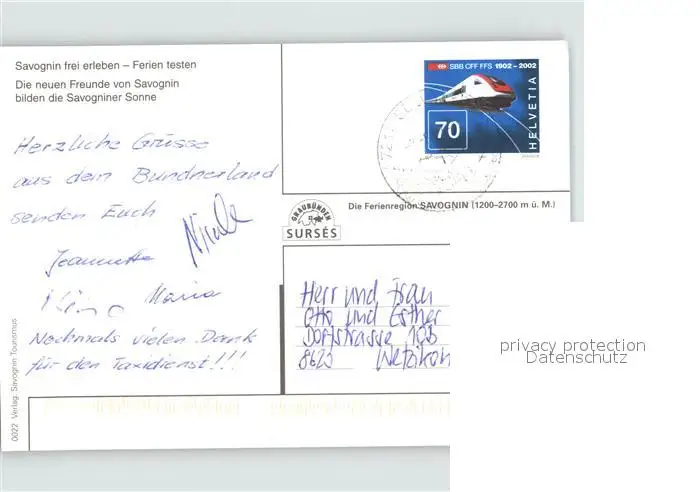 Savognin frei erleben – Ferien testen
Die neuen Freunde von Savognin
bilden die Savogniner Sonne
Herzliche Grüsse
aus dem Bündnerland
senden Euch
Nicole
Jeannette
Maria
Nochmals vielen Dank
für den Taxidienst!!!
0022 Verlag: Savognin Tourismus
SBB CFF FFS 1902 – 2002
70
HELVETIA
Die Ferienregion SAVOGNIN (1200–2700 m ü. M.)
GRAUBÜNDEN
SURSÉS
Herr und Frau
Otto und Esther
Dorfstrasse
8623 Wetzikon
privacy protection
Datenschutz